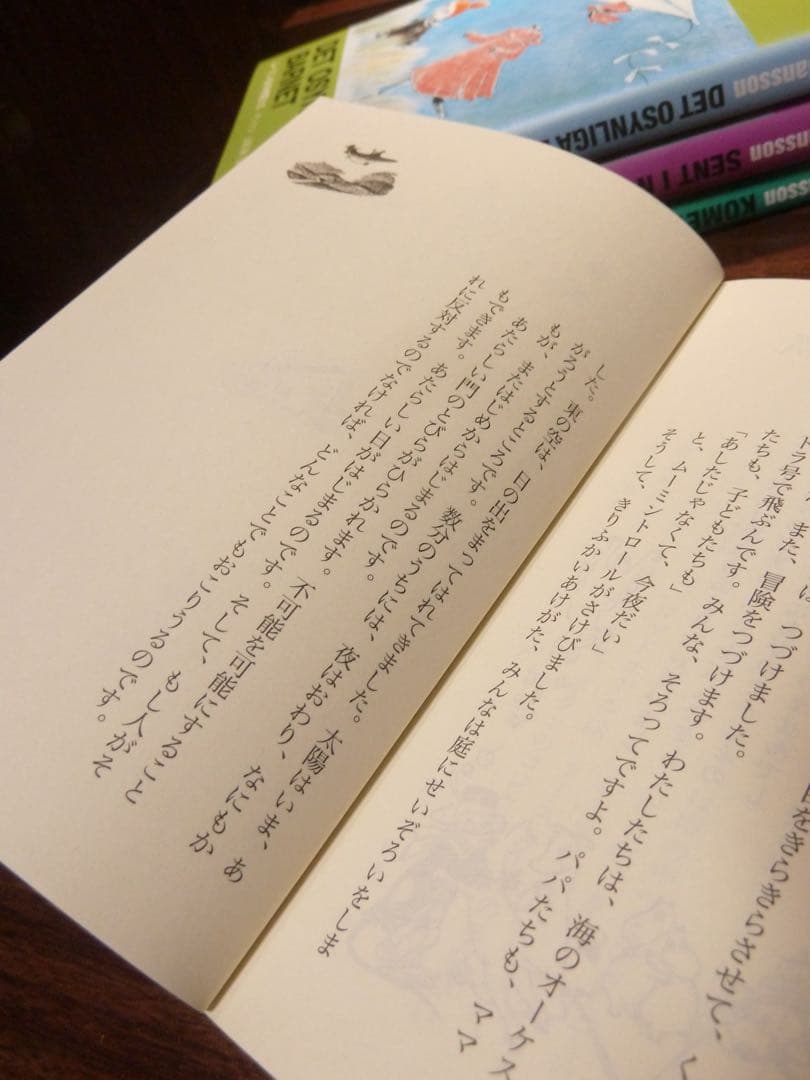 目をきらきらさせて、
つづけました。
また、冒険をつづけます。わたしたちは、海のオーケス
トラ号で飛ぶんです。みんな、そろってですよ。パパたちも、ママ
たちも、子どもたちも」
「あしたじゃなくて、今夜だい」
と、ムーミントロールがさけびました。
そうして、きりふかいあけがた、みんなは庭にせいぞろいをしま
した。
東の空は、日の出をまってはれてきました。太陽はいま、あ
がろうとするところです。数分のうちには、夜はおわり、なにもか
もが、またはじめからはじまるのです。
あたらしい門のとびらがひらかれます。不可能を可能にすること
もできます。あたらしい日がはじまるのです。そして、もし人がそ
れに反対するのでなければ、どんなことでもおこりうるのです。
DET OSY
BARNET
ansson DET OSYNLIGA
nsson SENT I N
sson KOME